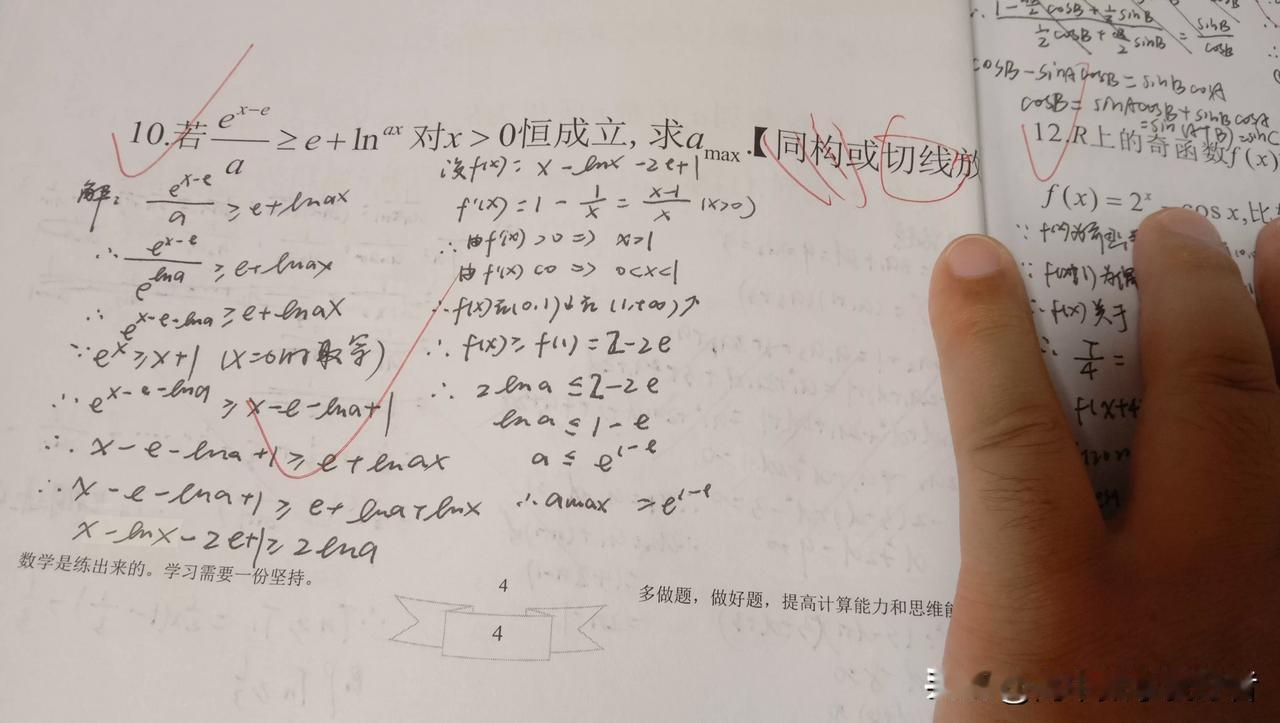 10.若e^{x-e}/a ≥ e + ln^{ax} 对x > 0恒成立, 求a_{max}.【同构或切线放
解: e^{x-e}/a ≥ e+lnax
∴ e^{x-e}/e^{lna} ≥ e+lnax
∴ e^{x-e-lna} ≥ e+lnax
∵ e^x ≥ x+1 (x=0时取等)
∴ e^{x-e-lna} ≥ x-e-lna+1
∴ x-e-lna+1 ≥ e+lnax
∴ x-e-lna+1 ≥ e+lna+lnx
x-lnx-2e+1 ≥ 2lna
设f(x) = x-lnx-2e+1
f'(x) = 1 - 1/x = x-1/x (x>0)
∴ 由f'(x) >0 => x>1
由f'(x) <0 => 0<x<1
∴ f(x)在(0,1)↓在(1,+∞)↗
∴ f(x) ≥ f(1) = 2-2e
∴ 2lna ≤ 2-2e
lna ≤ 1-e
a ≤ e^{1-e}
∴ amax = e^{1-e}
数学是练出来的。学习需要一份坚持。
4
4
多做题，做好题，提高计算能力和思维能
cosB-sinAcosB=sinBcosA
cosB= sinAcosB+sinBcosA
=sin(A+B)=sinC
12.R上的奇函数f(x)
f(x) = 2^x - cosx,比
∴ f(x)关于
f(x+4